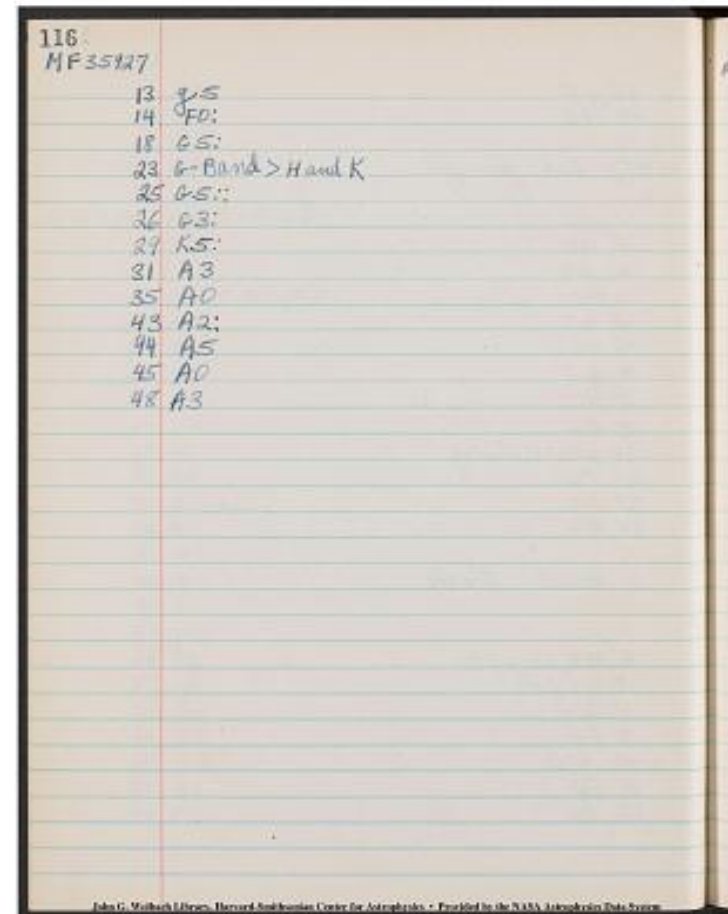 116
MF35927
13 g5
14 F0:
18 G5:
23 G-Band > H and K
25 G5::
26 G3:
29 K5:
31 A3
35 A0
43 A2:
44 A5
45 A0
48 A3
John G. Wolbach Library, Harvard-Smithsonian Center for Astrophysics • Provided by the NASA Astrophysics Data System